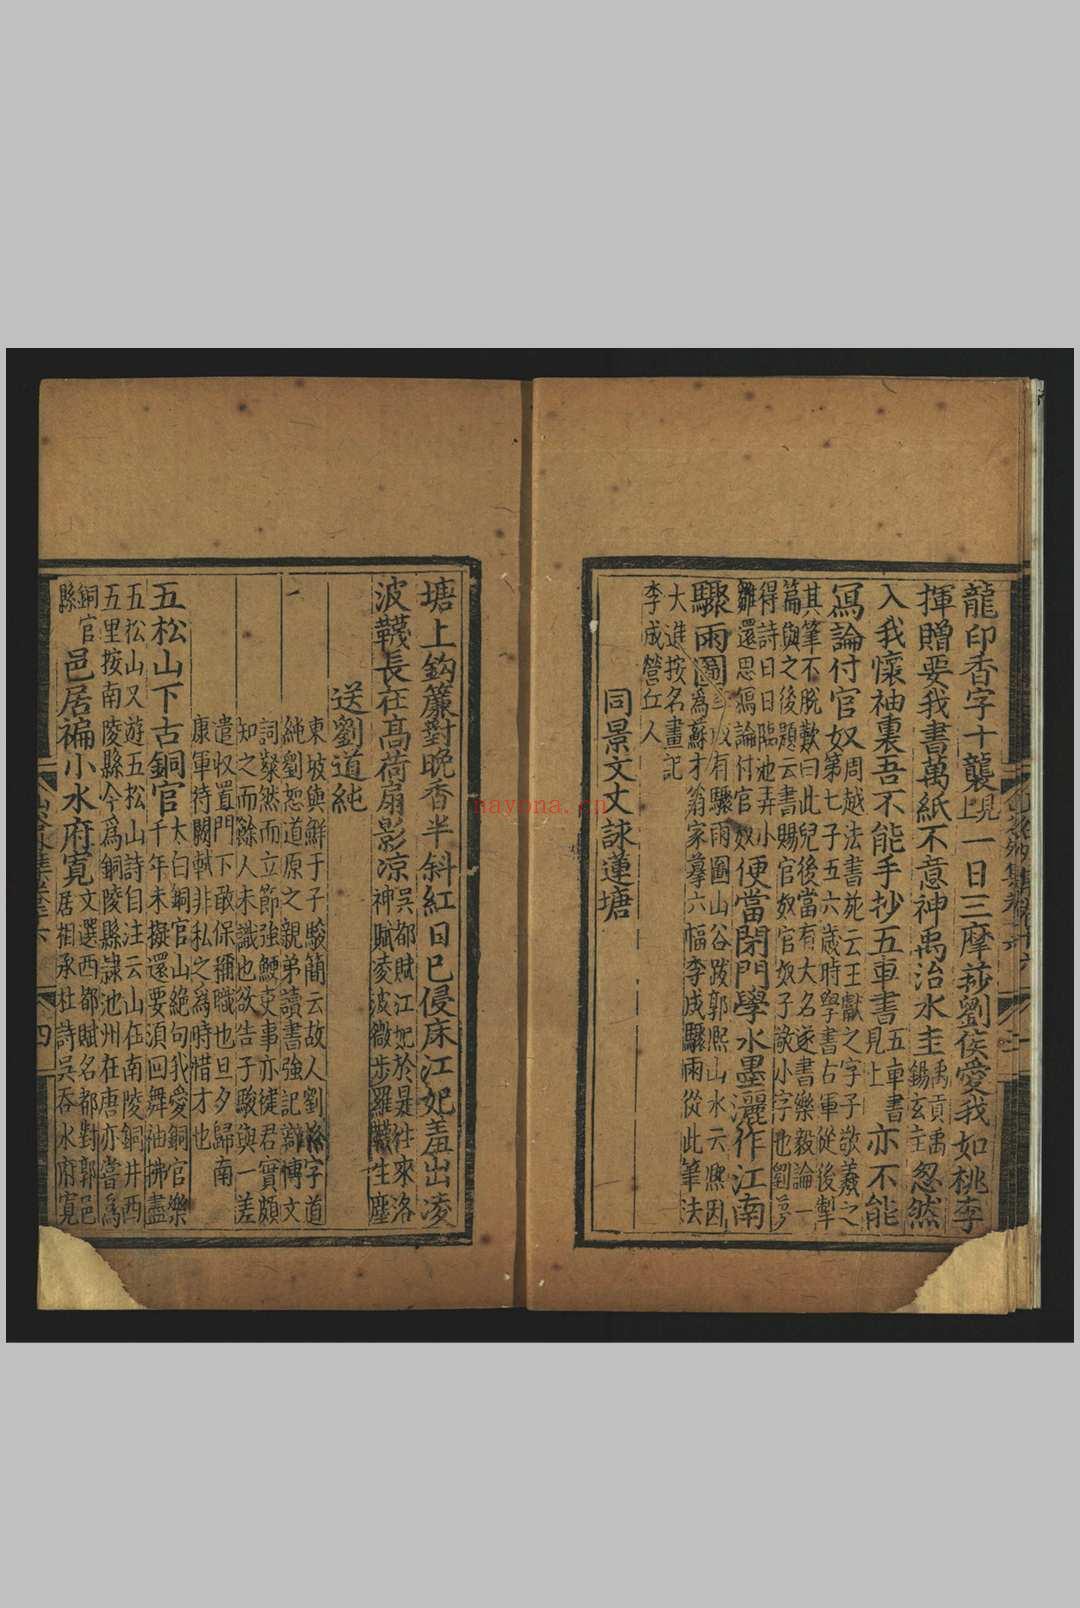 龍印香字十襲見上一日三摩挲劉侯愛我如桃李
揮贈要我書萬紙不意神禹治水圭禹貢禹錫玄圭忽然
入我懷袖裏吾不能手抄五車書五車書見上亦不能
寫論付官奴周越法書苑云王獻之字子敬羲之第七子五六歲時學書右軍從後掣
其筆不脫歎曰此兒後當有大名遂書樂毅論一篇與之後題云書賜官奴官奴子敬小字也劉夢
得詩曰日臨池弄小雛還思寫論付官奴便當閉門學水墨灑作江南
驟雨圖有驟雨圖山谷跋郭熙山水云熙因爲蘇才翁家摹六幅李成驟雨從此筆法
大進按名畫記李成營丘人
同景文丈詠蓮塘
塘上鈎簾對晚香半斜紅日已侵床江妃羞出凌
波韈長在高荷扇影凉吳都賦江妃於是往來洛神賦凌波微步羅韈生塵
送劉道純
東坡與鮮于子駿簡云故人劉格字道純劉恕道原之親弟讀書強記辯博文
詞粲然而立節強鯁吏事亦徤君實頗知之而餘人未識也欲告子駿與一差
遣收置門下敢保稱職也旦夕歸南康軍待闕軾非私之爲時惜才也
五松山下古銅官太白銅官山絕句我愛銅官樂千年未擬還要須回舞袖拂盡
五松山又遊五松山詩自注云山在南陵銅井西五里按南陵縣今爲銅陵縣隷池州在唐亦嘗爲
銅官縣邑居褊小水府寬文選西都賦名都對郭邑居相承杜詩吳吞水府寬
四
nayona.cn